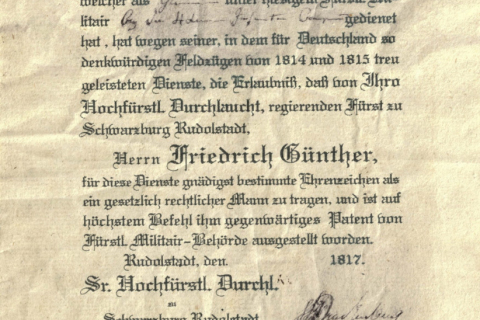 welcher als unter hiesigem Fürstl. Mi-
litair gedienet
hat, hat wegen seiner, in dem für Deutschland so
denkwürdigen Feldzügen von 1814 und 1815 treu
geleisteten Dienste, die Erlaubniß, daß von Ihro
Hochfürstl. Durchlaucht, regierenden Fürst zu
Schwarzburg Rudolstadt,
Herrn Friedrich Günther,
für diese Dienste gnädigst bestimmte Ehrenzeichen als
ein gesetzlich rechtlicher Mann zu tragen, und ist auf
höchstem Befehl ihm gegenwärtiges Patent von
Fürstl. Militair-Behörde ausgestellt worden.
Rudolstadt, den. 1817.
Sr. Hochfürstl. Durchl.
zu
Schwarzburg Rudolstadt